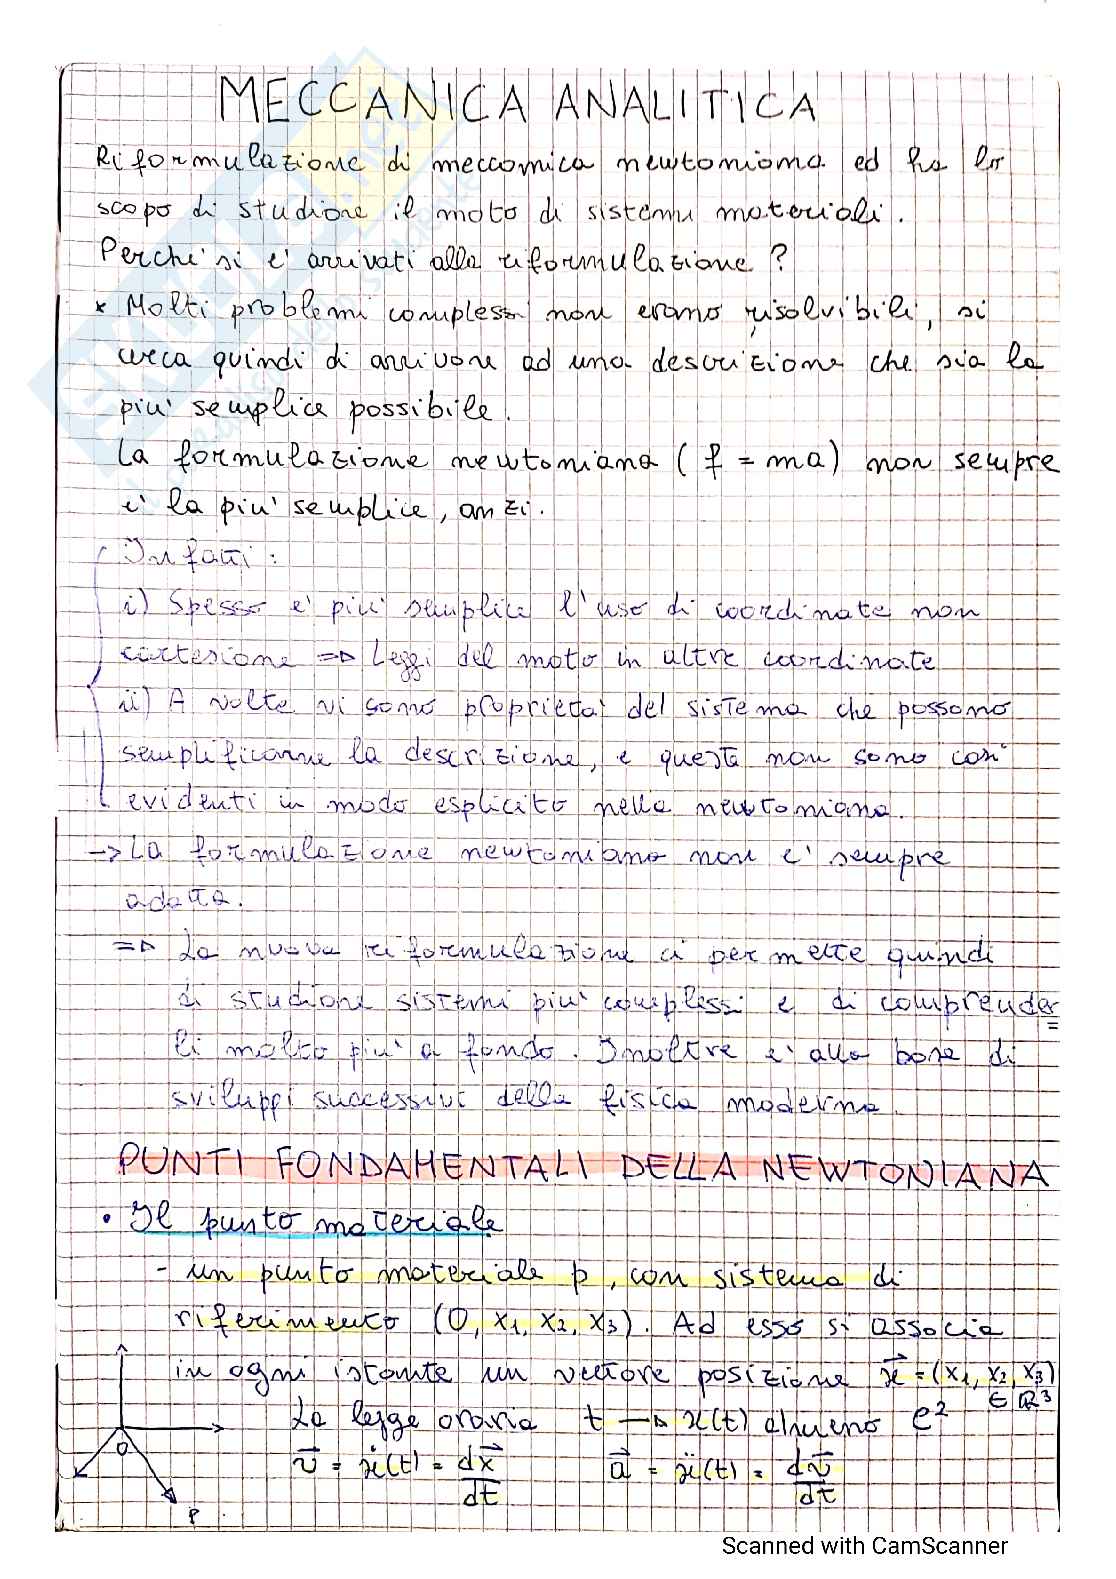 MECCANICA ANALITICA
Riformulazione di meccanica newtoniana ed ha lo
scopo di studiare il moto di sistemi materiali.
Perche' si e' arrivati alla riformulazione?
* Molti problemi complessi non erano risolvibili, si
cerca quindi di arrivare ad una descrizione che sia la
piu' semplice possibile.
La formulazione newtoniana (f = ma) non sempre
e' la piu' semplice, anzi.
Infatti:
i) Spesso e' piu' semplice l'uso di coordinate non
cartesiane => Leggi del moto in altre coordinate
ii) A volte vi sono proprieta' del sistema che possono
semplificarne la descrizione, e queste non sono cosi'
evidenti in modo esplicito nella newtoniana.
-> La formulazione newtoniana non e' sempre
adatta.
=> La nuova riformulazione ci permette quindi
di studiare sistemi piu' complessi e di comprender
li molto piu' a fondo. Inoltre e' alla base di
sviluppi successivi della fisica moderna.
PUNTI FONDAMENTALI DELLA NEWTONIANA
• Il punto materiale
- un punto materiale p, con sistema di
riferimento (O, x₁, x₂, x₃). Ad esso si associa
in ogni istante un vettore posizione x⃗ = (x₁, x₂, x₃)
∈ ℝ³
La legge oraria t —▷ x(t) almeno C²
v⃗ = ẋ(t) = dx⃗/dt a⃗ = ẍ(t) = dv⃗/dt
O
P
Scanned with CamScanner